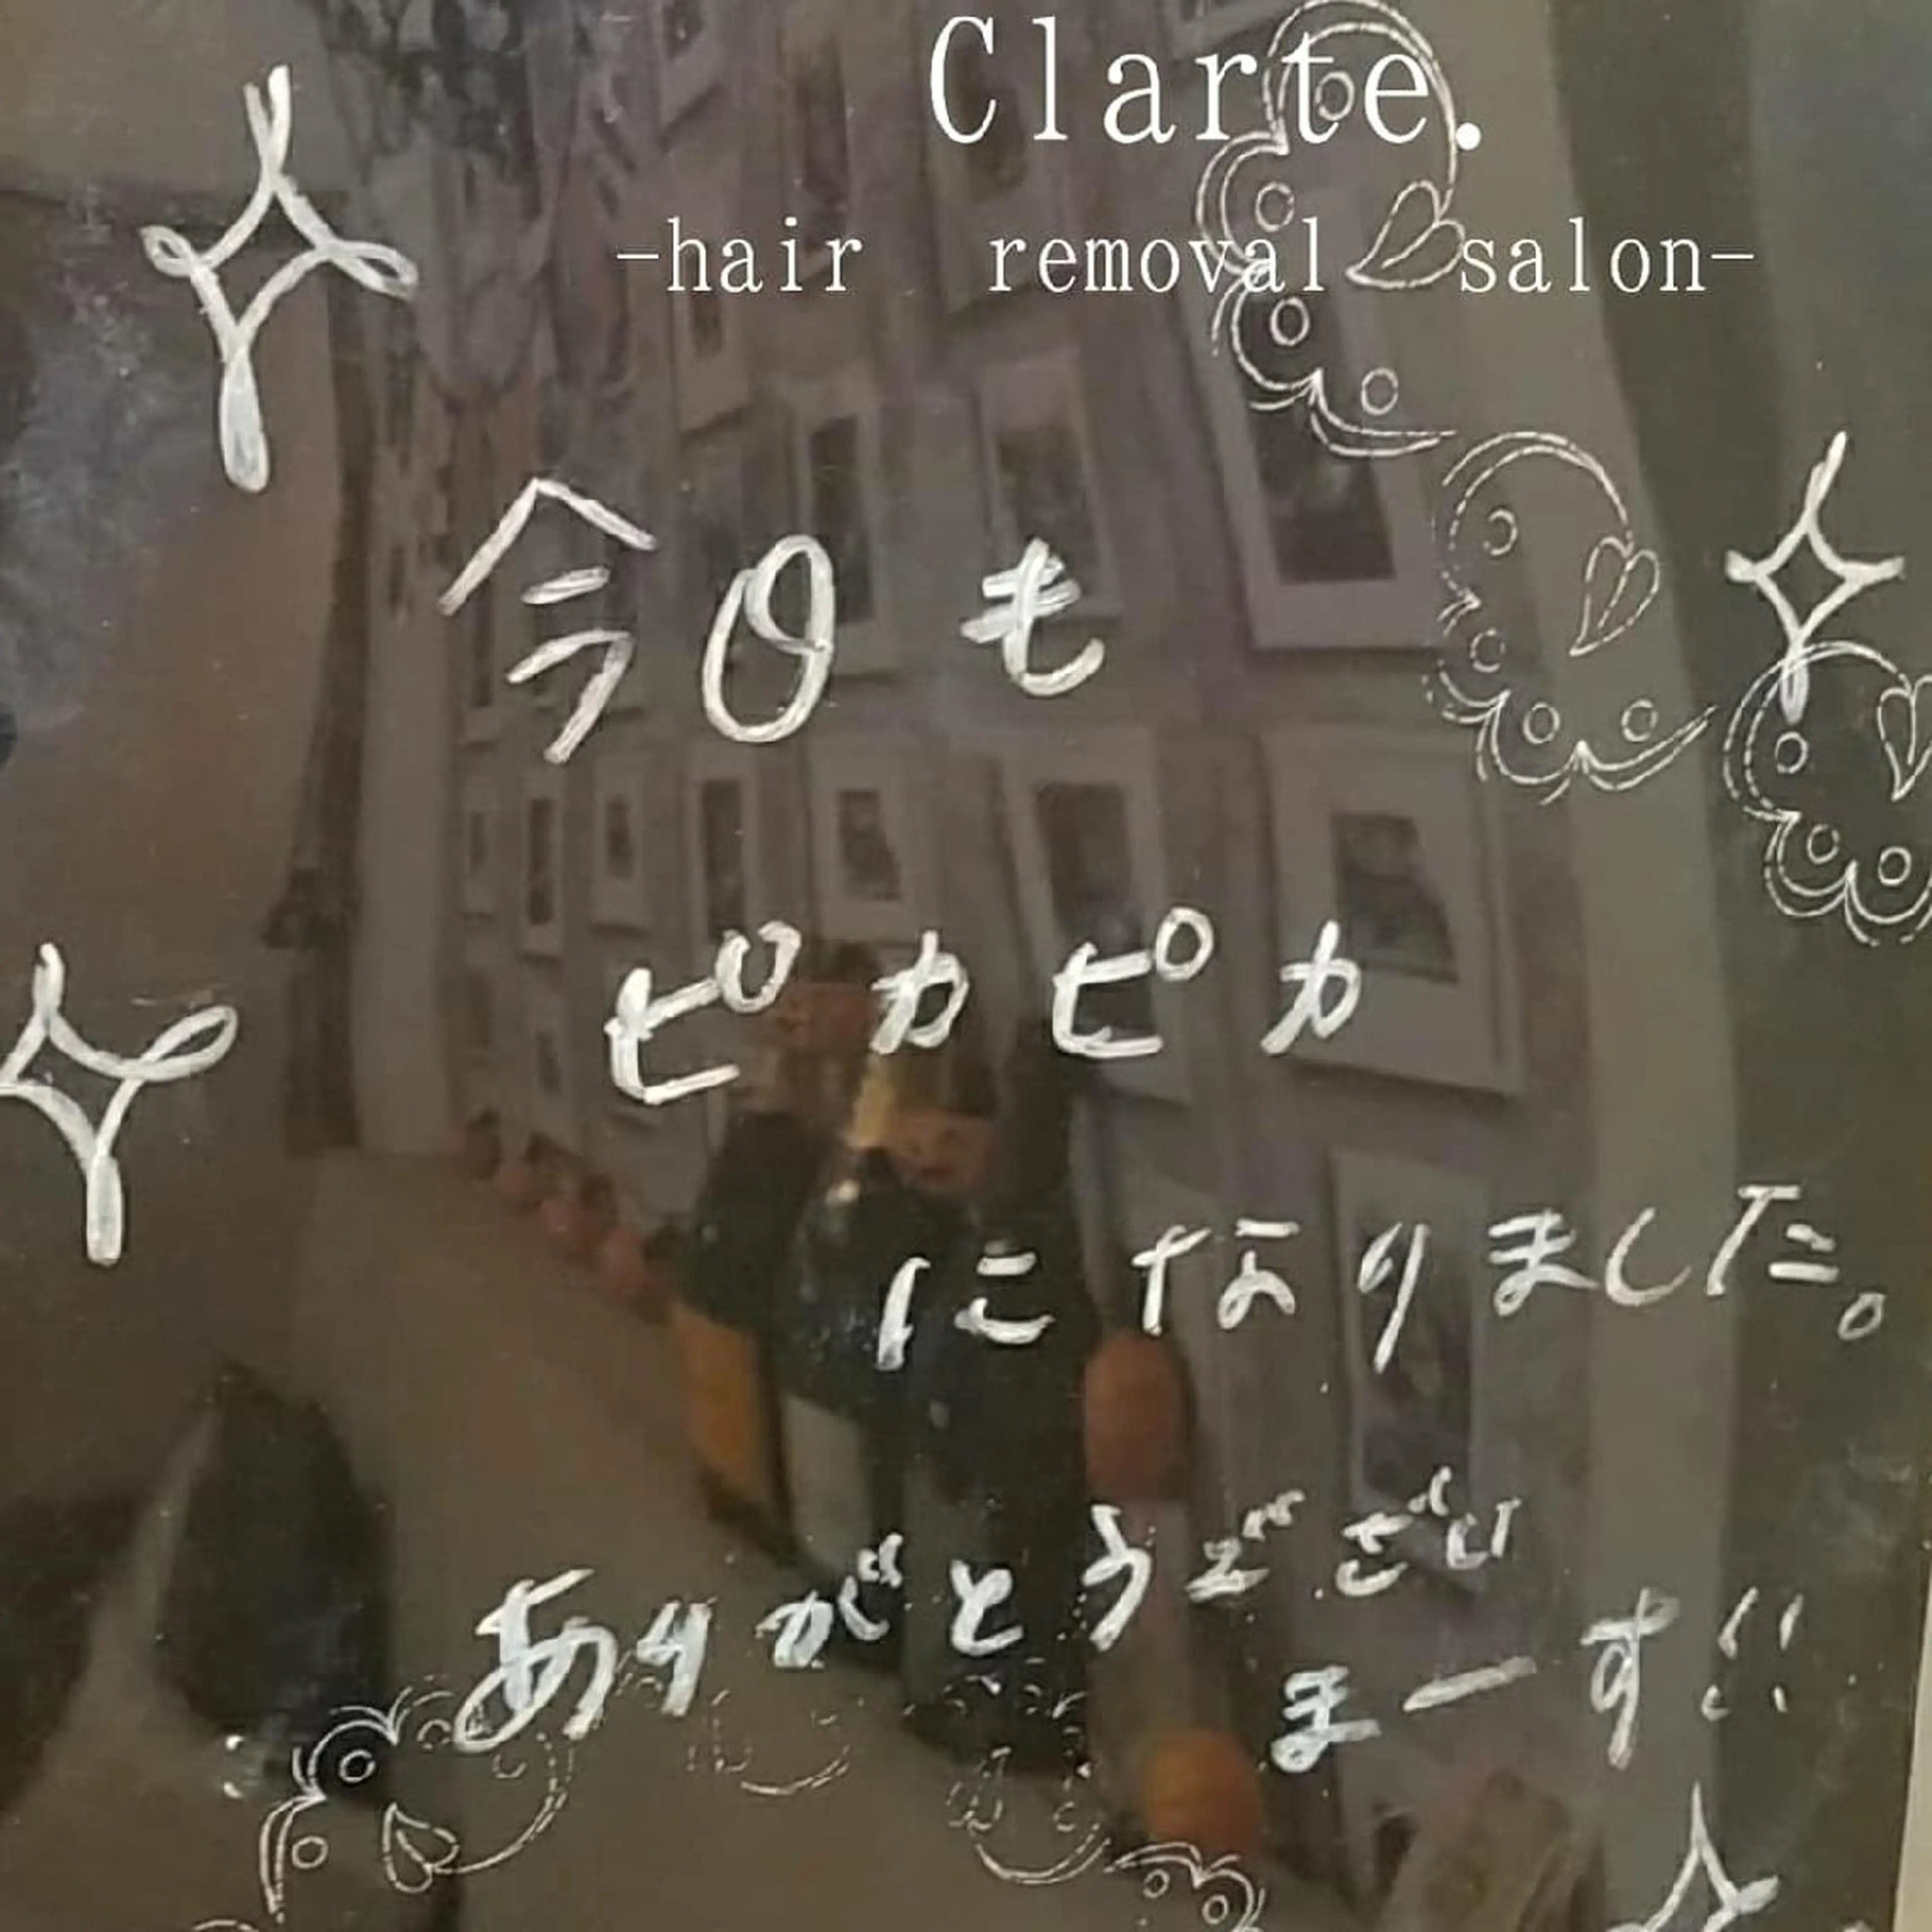 Clarte.
-hair removal salon-
今日も
ピカピカ
になりました。
ありがとうござい
まーす!!